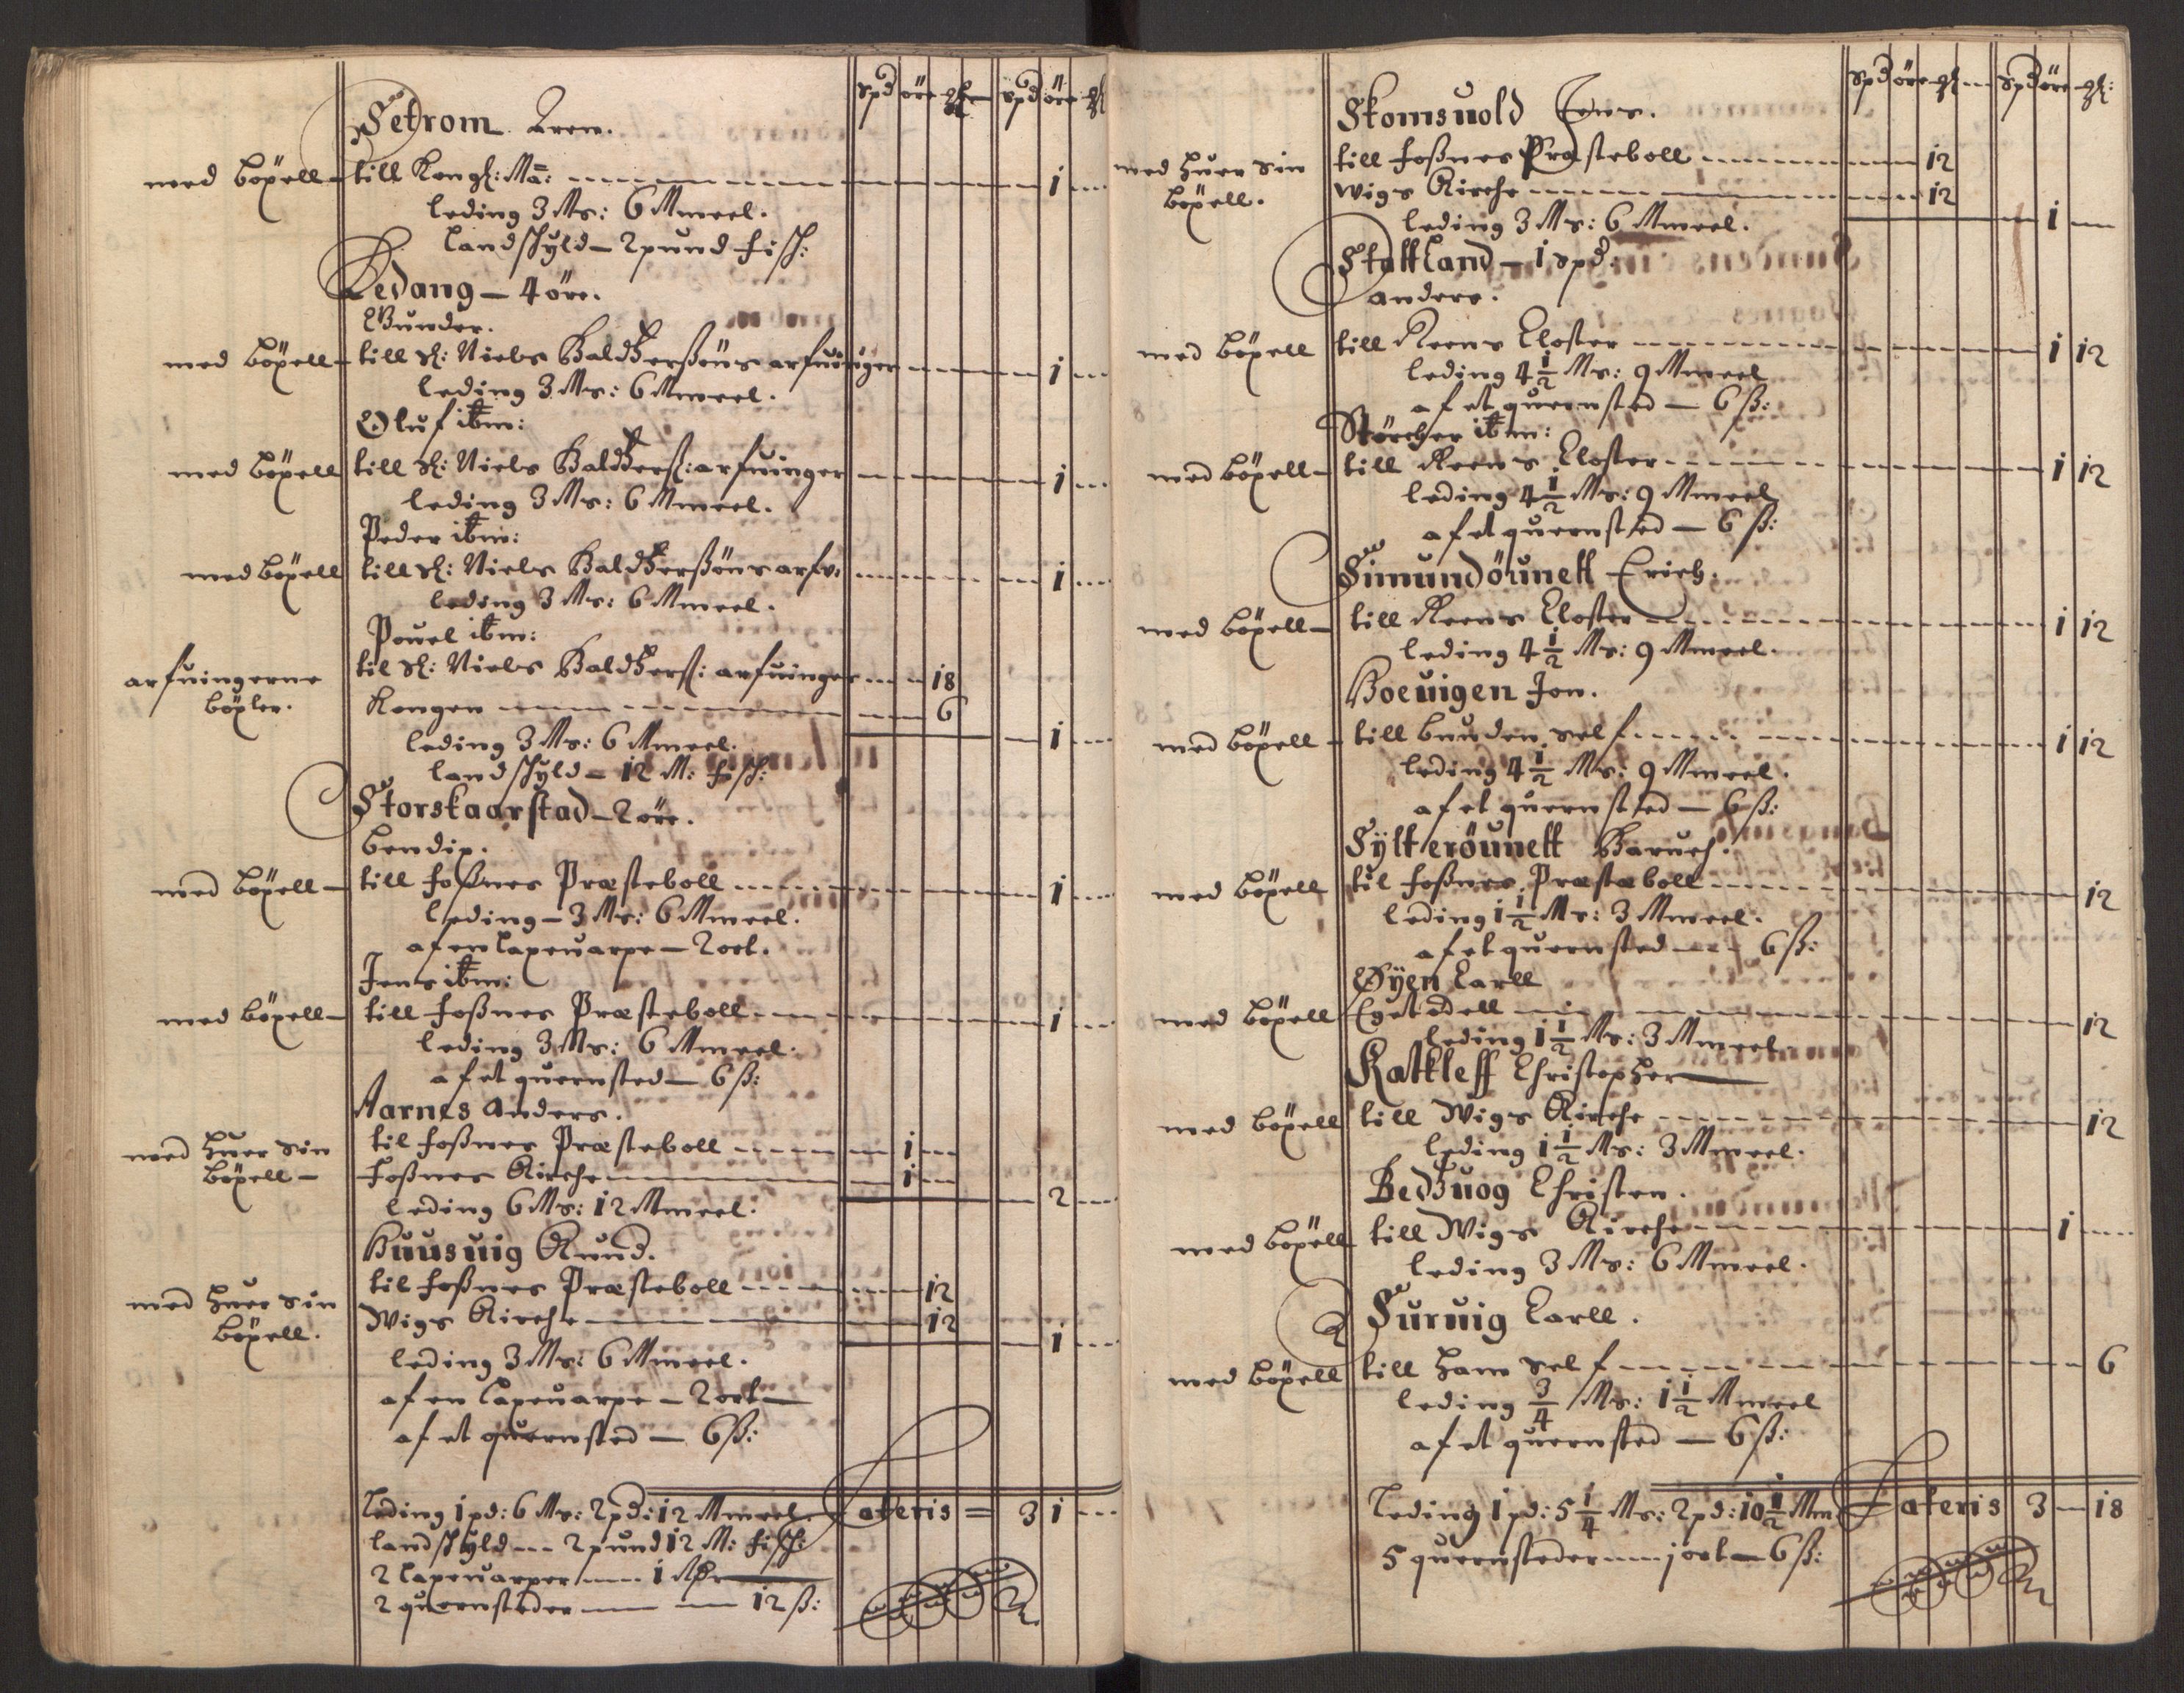 spd öre gl: spd öre gl
Setrom Aren.
med böxell till Kongl: Ma: 1
leding 3 Mr: 6 Mmeel.
landschyld 2 pund fisch:
Kedang 4 öre.
Gunder.
med böxell till Sl: Niels Baldtzersöns arfuinger 1
leding 3 Mr: 6 Mmeel.
Oluf ibm:
med böxell till Sl: Niels Baldtzers: arfuinger 1
leding 3 Mr: 6 Mmeel.
Peder ibm:
med böxell till Sl: Niels Baldtzersöns arfv: 1
leding 3 Mr: 6 Mmeel.
Pouel ibm:
arfuingerne til Sl: Niels Baldtzers: arfuinger 18
böxler. Kongen 6
leding 3 Mr: 6 Mmeel. 1
landschyld 12 M: fisch:
Storskaarstad 2 öre.
Bendix.
med böxell till foßnes Præsteboll 1
leding 3 Mr: 6 Mmeel.
af en laxeuarpe 2 ort.
Jens ibm:
med böxell till foßnes Præsteboll 1
leding 3 Mr: 6 Mmeel.
af et quernsted 6 ß:
Aarnes Anders.
med huer sin til foßnes Præsteboll 1
böxell foßnes Kirche 1
leding 6 Mr: 12 Mmeel. 2
Huusuig Knud.
med huer sin til foßnes Præsteboll 12
böxell. Wigs Kirche 12
leding 3 Mr: 6 Mmeel. 1
af en laxeuarpe 2 ort
af et quernsted 6 ß:
Leding 1 pd: 6 Mr: 2 pd: 12 Mmeel. Lateris 3 1
landschyld 2 pund 12 M: fisch:
2 laxeuarper 1 Rdr
2 quernsteder 12 ß:
spd öre gl spd öre gl:
Skomsuold Jens.
med huer sin till foßnes Præsteboll 12
böxell. Wigs Kirche 12
leding 3 Mr: 6 Mmeel. 1
Stattland 1 spd:
anders.
med böxell till Reens Closter 1 12
leding 4 1/2 Mr: 9 Mmeel
af et quernsted 6 ß:
Störcher ibm:
med böxell till Reens Closter 1 12
leding 4 1/2 Mr: 9 Mmeel
af et quernsted 6 ß:
Simundöunett Erich.
med böxell till Reens Closter 1 12
leding 4 1/2 Mr: 9 Mmeel.
Hoeuigen Jon.
med böxell till bunden self 1 12
leding 4 1/2 Mr: 9 Mmeel.
af et quernsted 6 ß:
Syltteröunett Baruch.
med böxell til foßnes Præsteboll 12
leding 1 1/2 Mr: 3 Mmeel.
af et quernsted 6 ß:
Øyen Carll
med böxell Eget odell 12
leding 1 1/2 Mr: 3 Mmeel
Kattleff Christopher
med böxell till Wigs Kirche 12
leding 1 1/2 Mr: 3 Mmeel.
Bedtzuog Christen.
med böxell till Wigs Kirche 1
leding 3 Mr: 6 Mmeel.
Suruig Carll.
med böxell till ham self 6
leding 3/4 Mr: 1 1/2 Mmeel
af et quernsted 6 ß:
Leding 1 pd: 5 1/4 Mr: 2 pd: 10 1/2 Mm Lateris 3 18
5 quernsteder 1 ort 6 ß: